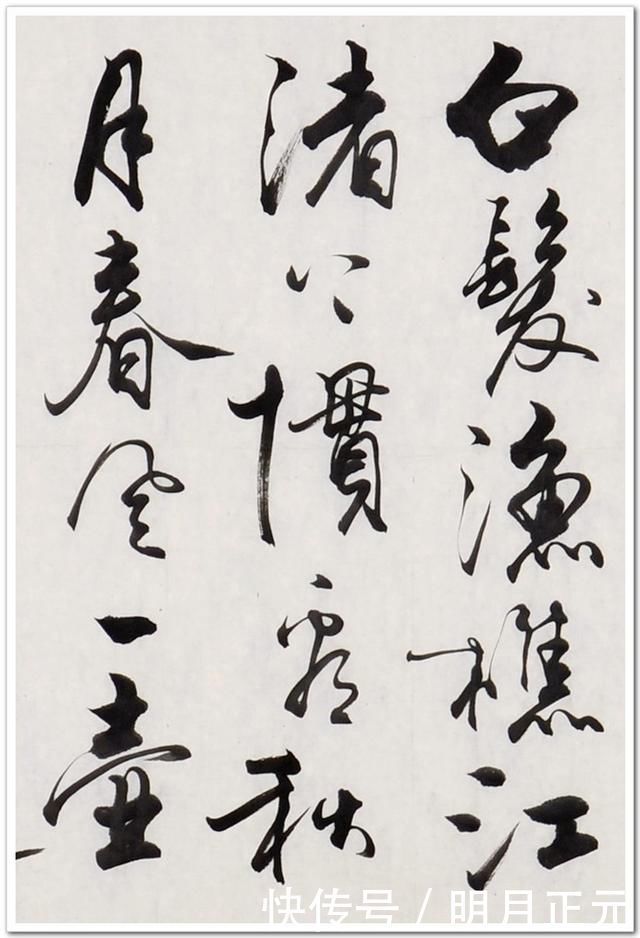 白髮漁樵江
渚上慣看秋
月春風一壺
快传号 / 明月正元